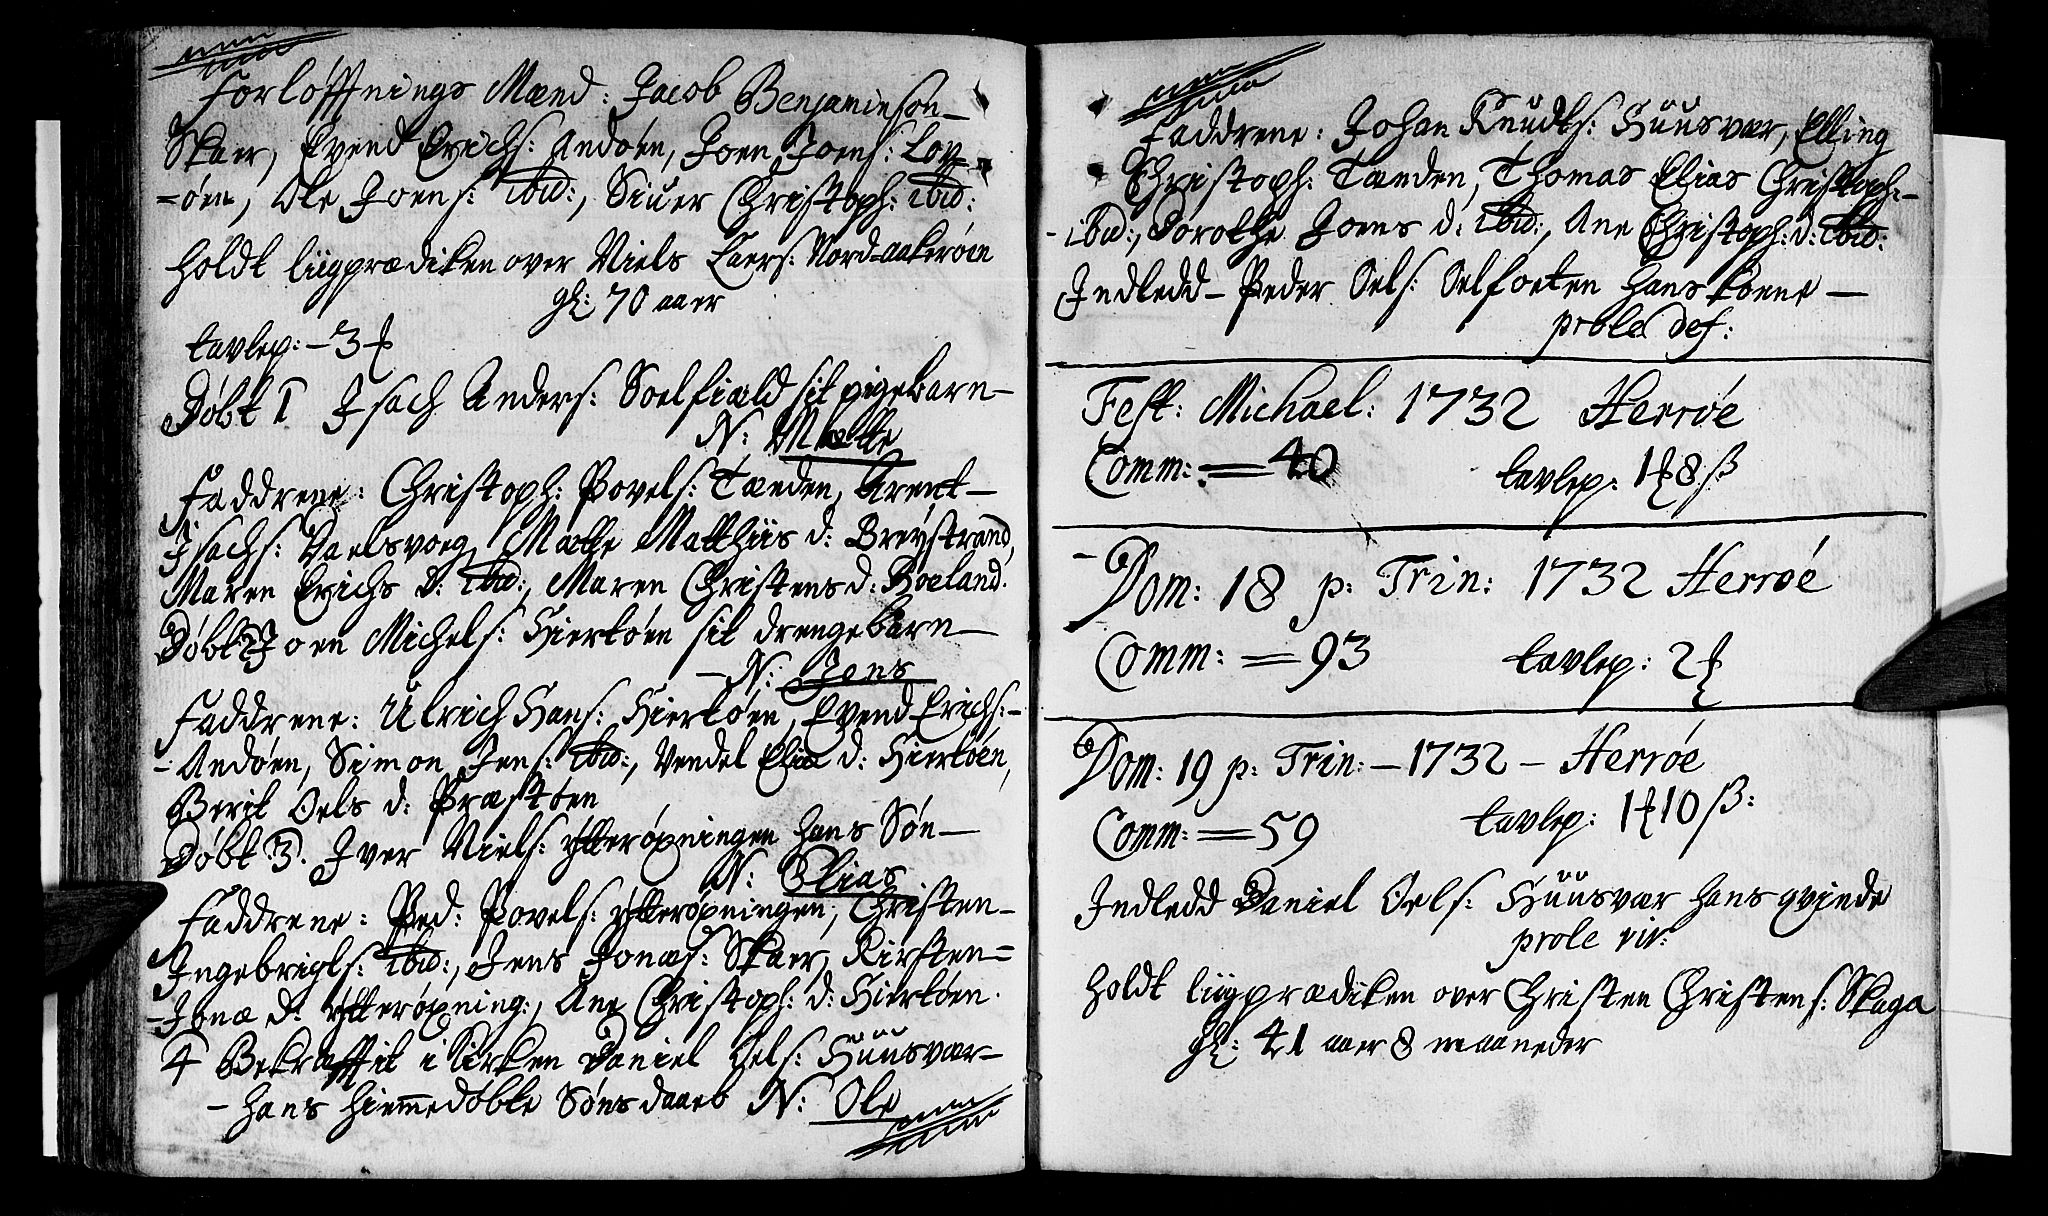 Forløffnings Mænd: Jacob Benjaminson
Skaer, Evend Erichs: Andøen, Joen Joens: Lov-
-øen, Ole Joens: ibid:, Siuer Christoph: ibid:
Holdt liigprædiken over Niels Laers: Nord-aakerøen
gl: 70 aaer
tavlep: - 3
Døbt 1 Isach Anders: Soelfiæld sit pigebarn-
N: Mætte
Faddrene: Christoph: Povels: Tænden, Arent-
Isachs: Vaelsvoeg, Mætte Matthiis d: Breystrand,
Maren Erichs d: ibid:, Maren Christens d: Boeland.
Døbt 2 Joen Michels: Hiertøen sit drengebarn-
- N: Jens
Faddrene: Ulrich Hans: Hiertøen, Evend Erichs:-
- Andøen, Simon Jens: ibid:, Vendel Eliæ d: Hiertøen,
Berit Oels d: Præstøen
Døbt 3. Iver Niels: ytterøxningen hans Søn-
N: Elias
Faddrene: Ped: Povels: ytterøxningen, Christen-
Ingebrigts: ibid:, Jens Jonæs: Skaer, Kirsten=
-Jonæ d: ytterøxning:, Ane Christoph: d: Hiertøen.
4 Bekræfftit i Kirken Daniel Oels: Huusvær-
- hans hiemmedøbte Søns daab N: Ole
Faddrene: Johan Knudts: Huusvær, Elling
Christoph: Tænden, Thomas Elias Christoph:-
-ibid:, Dorothe Joens d: ibid:, Ane Christoph: d: ibid:
Indledd - Peder Oels: Oelfoeten hans kone -
prole def:
Fest: Michael: 1732 Herrøe
Comm: = 40 tavlep: 1 8 ß
- Dom: 18 p: Trin: 1732 Herrøe
Comm: = 93 tavlep: 2
Dom: 19 p: Trin: - 1732 - Herrøe
Comm: = 59 tavlep: 1 10 ß:
Indledd Daniel Oels: Huusvær hans qvinde
prole viv:
Holdt liigprædiken over Christen Christens: Skaga
gl: 41 aaer 8 maaneder